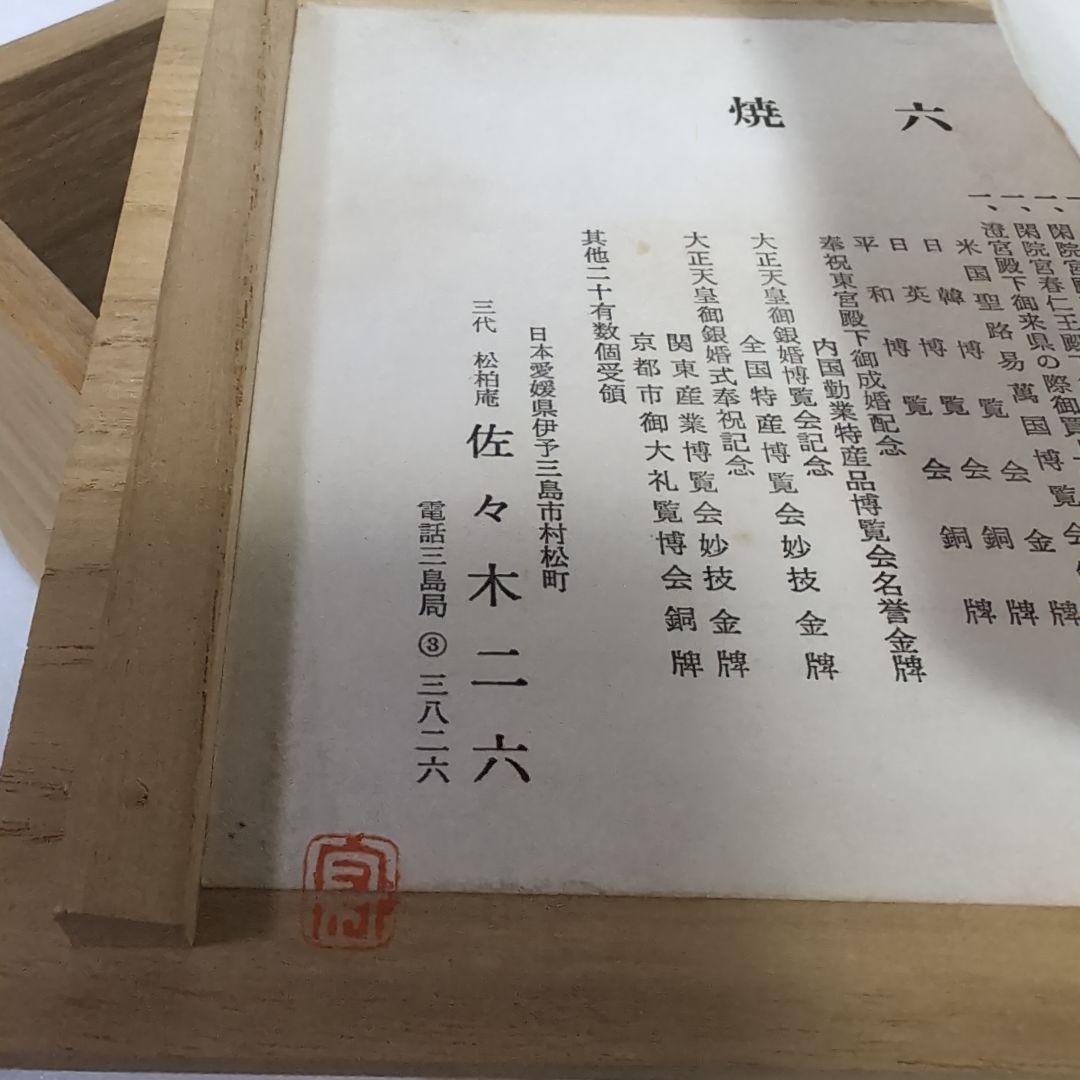 六焼
一、閑院宮殿
一、閑院宮春仁王殿下
一、澄宮殿下御来県の際御買
米国聖路易萬国博覧会
日韓博覧会金牌
日英博覧会銅牌
平和博覧会銅牌
奉祝東宮殿下御成婚配念
内国勤業特産品博覧会名誉金牌
大正天皇御銀婚博覧会記念
全国特産博覧会妙技金牌
大正天皇御銀婚式奉祝記念
関東産業博覧会妙技金牌
京都市御大礼覧博会銅牌
其他二十有数個受領
日本愛媛県伊予三島市村松町
三代 松柏庵 佐々木二六
電話三島局③三八二六